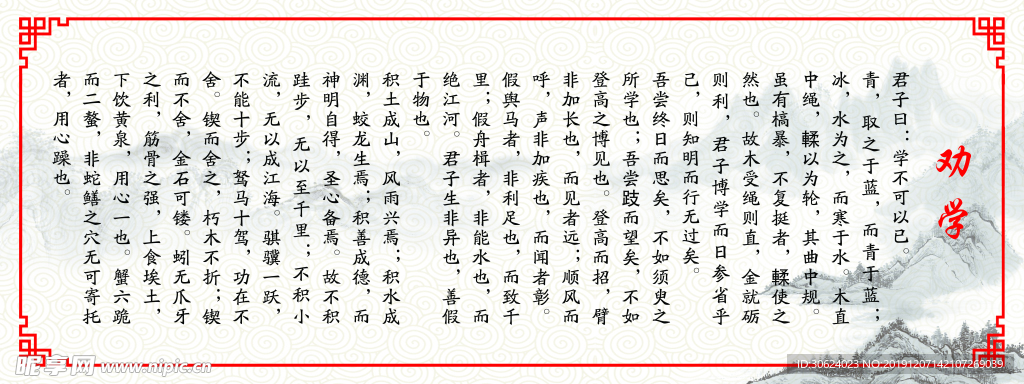 劝学
君子曰：学不可以已。
青，取之于蓝，而青于蓝；
冰，水为之，而寒于水。木直
中绳，輮以为轮，其曲中规。
虽有槁暴，不复挺者，輮使之
然也。故木受绳则直，金就砺
则利，君子博学而日参省乎
己，则知明而行无过矣。
吾尝终日而思矣，不如须臾之
所学也；吾尝跂而望矣，不如
登高之博见也。登高而招，臂
非加长也，而见者远；顺风而
呼，声非加疾也，而闻者彰。
假舆马者，非利足也，而致千
里；假舟楫者，非能水也，而
绝江河。君子生非异也，善假
于物也。
积土成山，风雨兴焉；积水成
渊，蛟龙生焉；积善成德，而
神明自得，圣心备焉。故不积
跬步，无以至千里；不积小
流，无以成江海。骐骥一跃，
不能十步；驽马十驾，功在不
舍。锲而舍之，朽木不折；锲
而不舍，金石可镂。蚓无爪牙
之利，筋骨之强，上食埃土，
下饮黄泉，用心一也。蟹六跪
而二螯，非蛇鳝之穴无可寄托
者，用心躁也。
昵享网 www.nipic.cn
ID:30624023 NO:20191207142107269039